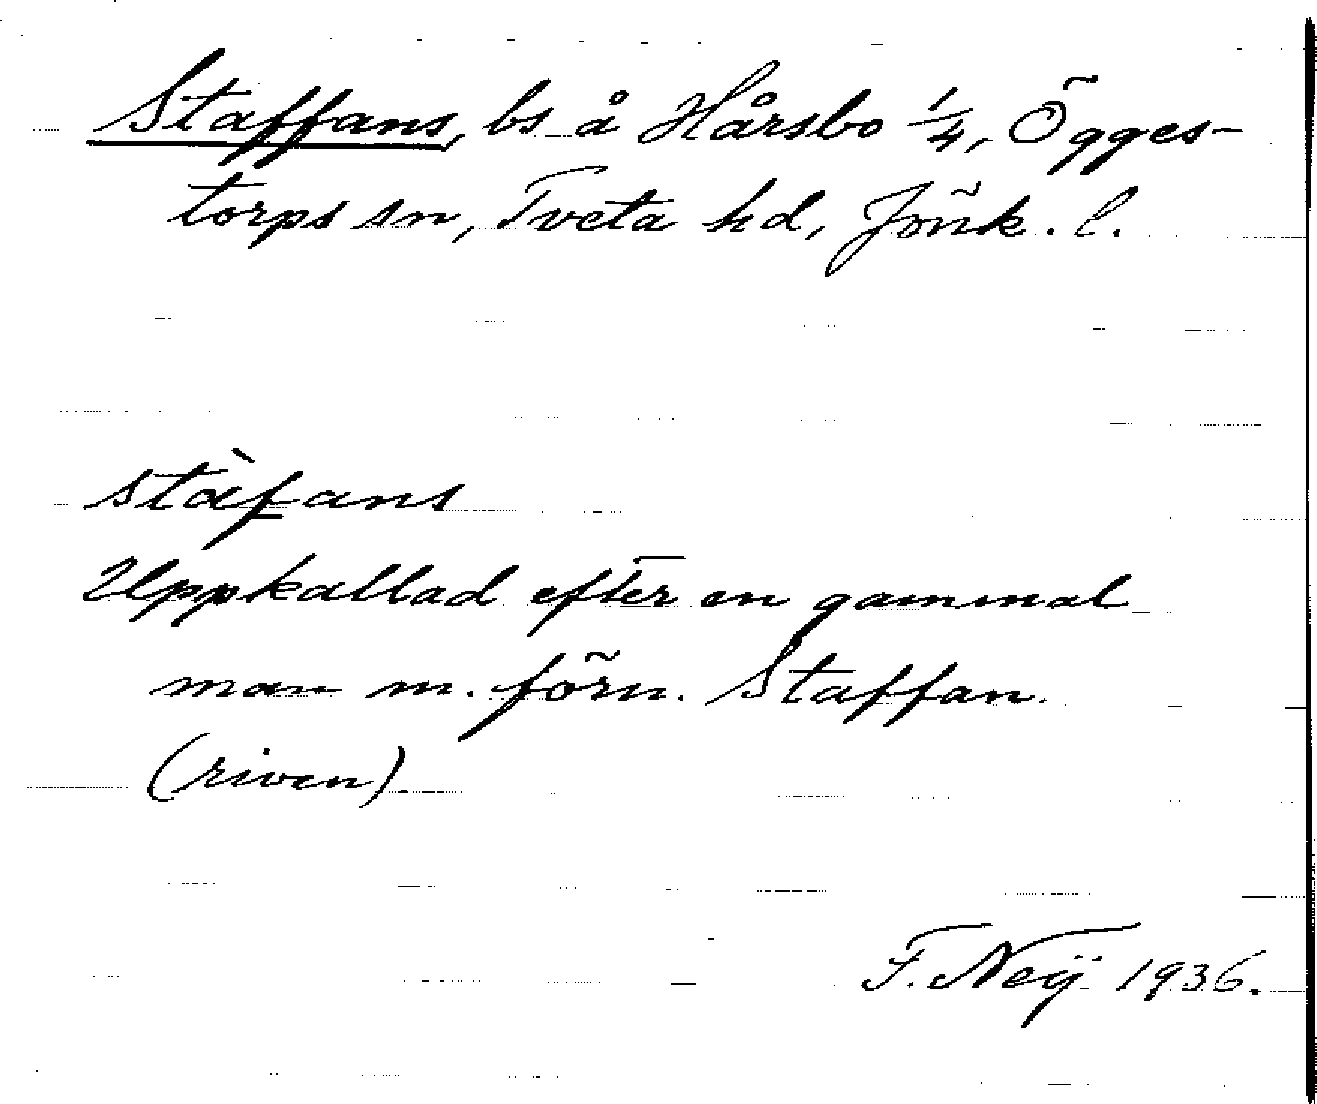 Staffans, bs å Hårsbo 1/4, Ögges-
torps sn, Tveta hd, Jönk. l.
stàfans
Uppkallad efter en gammal
man m. förn. Staffan.
(riven).
F. Neÿ 1936.